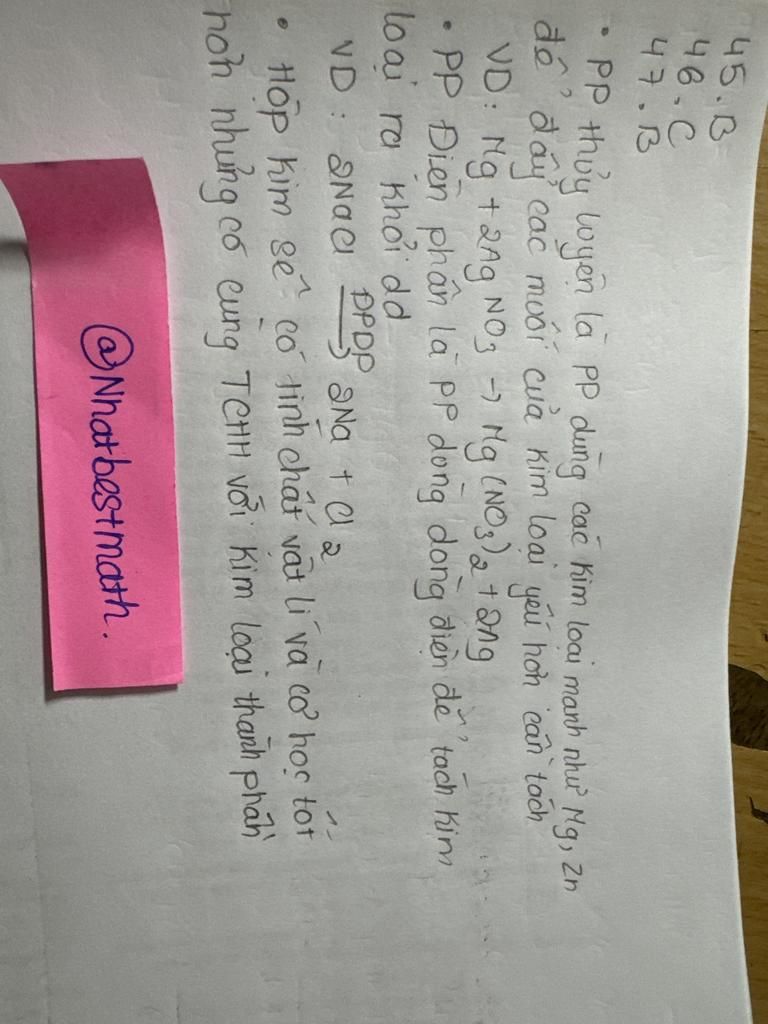 45.B
46.C
47.B
• PP thủy luyện là PP dùng các kim loại mạnh như Mg, Zn
để đẩy các muối của kim loại yếu hơn cần tách
VD: Mg + 2AgNO3 → Mg(NO3)2 + 2Ag
• PP Điện phân là PP dùng dòng điện để tách kim
loại ra khỏi dd
VD: 2NaCl ĐPDP→ 2Na + Cl2
• Hợp kim sẽ có tính chất vật lí và cơ học tốt
hơn nhưng có cùng TCHH với kim loại thành phần
@Nhatbestmath.